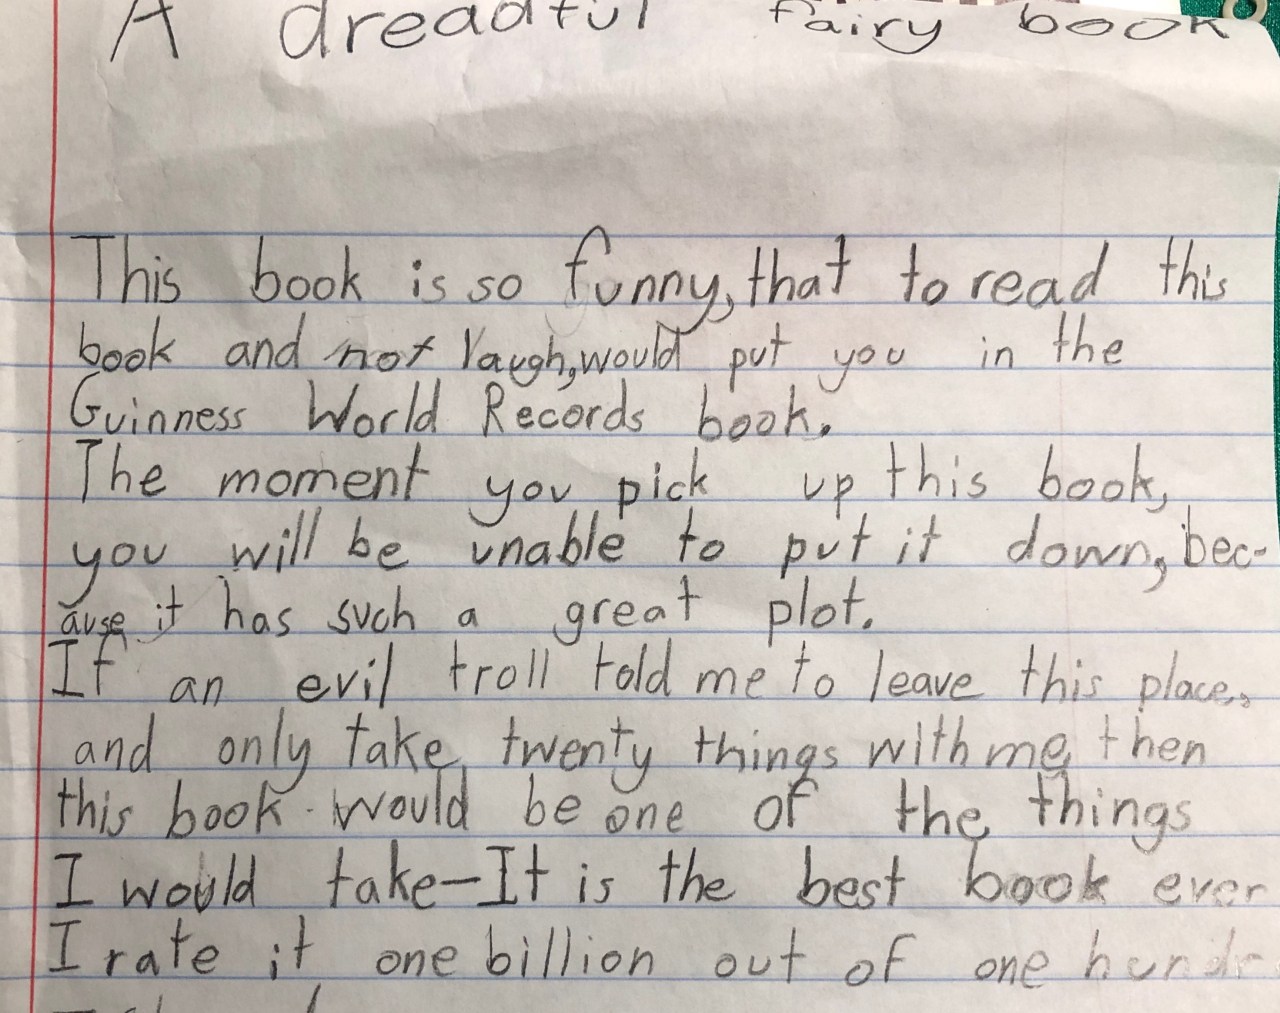 A dreadful fairy book
This book is so funny, that to read this
book and not laugh, would put you in the
Guinness World Records book.
The moment you pick up this book,
you will be unable to put it down, bec-
ause it has such a great plot.
If an evil troll told me to leave this place,
and only take twenty things with me, then
this book would be one of the things
I would take-It is the best book ever
I rate it one billion out of one hundr